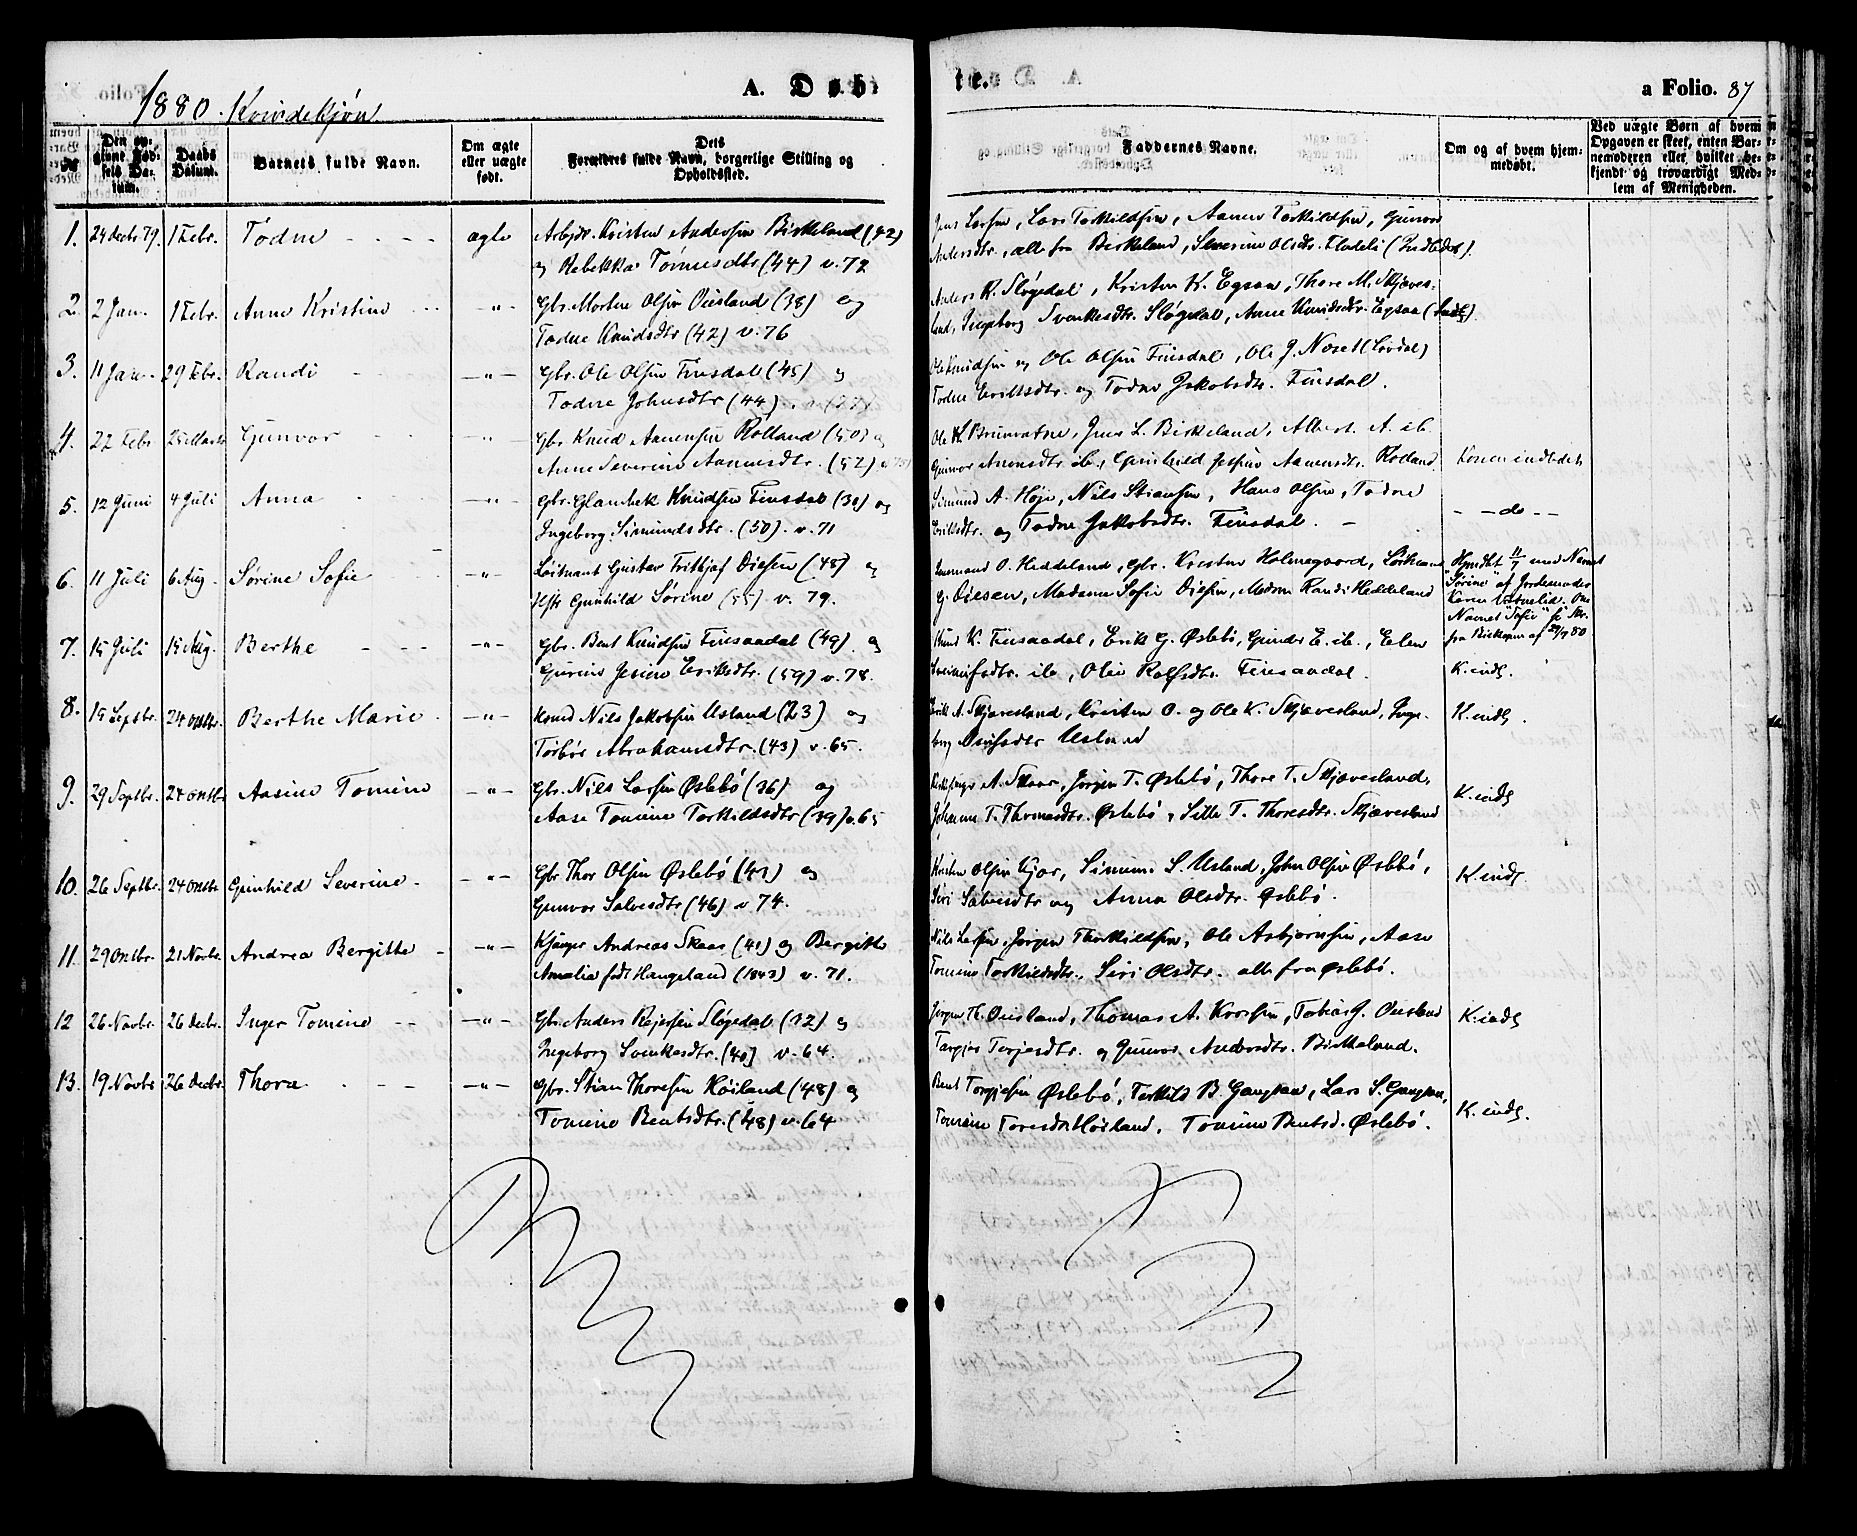 1880. Kvindekjøn
A. Døb
te.
a Folio. 87
No
Den opgivne Fødsels Datum.
Daabs Datum.
Barnets fulde Navn.
Om ægte eller uægte født.
Dets Forældres fulde Navn, borgerlige Stilling og Opholdssted.
Faddernes Navne.
Om og af hvem hjemmedøbt.
Ved uægte Børn af hvem Opgaven er skeet, enten Barnemoderen eller hvilket bekjendt og troværdigt Medlem af Menigheden.
1. 24 Decbr 79. 1 Febr. Todne ægte Arbejdr. Kristen Andersen Birkeland (42) Jens Larsen, Lars Torkildsen, Aanen Torkildsen, Gunvor
og Rebekka Tomesdtr (44) v. 72 Andersdtr. alle fra Birkeland, Severine Olsdtr. (Indledet).
2. 2 Jan. 1 Febr. Anne Kristine -"- Gbr. Morten Olsen Øiesland (38) og Anders R. Sløgedal, Kristen K. Egsaa, Thore M. Skjæves-
Todne Knudsdtr (42) v. 76 land, Ingeborg Svenkesdtr. Sløgedal, Anne Knudsdtr. Egsaa (Indl).
3. 11 Jan. 29 Febr. Randi -"- Gbr. Ole Olsen Finsdal (45) og Ole Knudsen og Ole Olsen Finsdal, Ole J.
Todne Johnsdtr (44). Todne Eriksdtr. og Todne Jakobsdtr. Finsdal.
4. 22 Febr. 25 Marts Gunvor -"- Gbr Knud Aanensen Rolland (50) og Jens L. Birkeland, Albert A. ib.
Anne Severine Aanensdtr. (52) Gunvor Anensdtr. ib., Gunhild Aanensdtr. Rolland Konen indledet
5. 12 Juni 4 Juli Anna -"- Gbr. Knudsen Finsdal (30) og Simund A. Høje, Nils Stiansen, Hans Olsen, Todne - - do - -
Ingeborg Simundsdtr. (50). v. 71 Eriksdtr. og Todne Jakobsdtr. Finsdal.
6. 11 Juli 6 Aug. Sørine Sofie -"- Løitnant Gustav Frithjof Oiesen (48) og O. Heddeland, Gbr. Kristen Holmegaard, Hjmdbt 11/7 med Navnet
Gunhild Sørine (55) v. 79. G. Oiesen, Madame Sofie Oiesen, Madam Randi Heddeland "Sørine" af Jordemoder
Karen
Navnet "Sofie"
fra Biskopen af
7. 15 Juli 15 Aug. Berthe -"- Gbr. Bent Knudsen Finsaadal (49) og Knud K. Finsaadal, Erik G. Øslebø, Gunder E. ib., Elen
Eriksdtr. (59) v. 78. ib, Rolfsdtr. Finsaadal. K. indl.
8. 15 Septbr. 24 Oktbr Berthe Marie -"- Nils Jakobsen Usland (23) og Erik A. Skjævesland, Kristen O. og Ole K. Skjævesland, Inge- K. indl.
Torbor Abrahamsdtr. (43) v. 65. borg Usland
9. 29 Septbr. 24 Oktbr Aasine Tomine -"- Gbr. Nils Larsen Øslebø (36) og A. Skaar, Jørgen T. Øslebø, Thore T. Skjævesland, K. indl
Aase Tomine Torkildsdtr (39) v. 65 Johanne T. Thomasdtr. Øslebø, Sille T. Thoresdtr. Skjævesland
10. 26 Septbr. 24 Oktbr Gunhild Severine -"- Gbr Thor Olsen Øslebø (43) og Kristen Olsen, Simun S. Usland, John Olsen Øslebø, K. indl.
Gunvor Salvesdtr (46) v. 74. Siri Salvesdtr og Anna Olsdtr. Øslebø.
11. 29 Oktbr. 21 Novbr. Andrea Bergitte -"- Andreas Skaar (41) og Bergitte Nils Larsen, Jørgen Thorkildsen, Ole Asbjørnsen, Aase
Amalia født Haugeland (1843) v. 71. Tomine Torkildsdtr., Siri Olsdtr. alle fra Øslebø.
12 26 Novbr. 26 Decbr. Inger Tomine -"- Gbr. Anders Rejersen Sløgedal (32) og Jørgen Th. Øiesland, Thomas A., Tobias G. Øiesland K. indl
Ingeborg Svenkesdtr. (40) v. 64. Terjesdtr. og Gunvor Andersdtr. Birkeland.
13. 19 Novbr 26 Decbr. Thora -"- Gbr. Stian Thoresen Høiland (48) og Bent Torgjesen Øslebø, Torkild B. Gangsaa, Lars S. Gangsaa, K. indl.
Tomine Bentsdtr. (48) v. 64 Tomine Toresdtr Høiland, Tomine Bentsd. Øslebø.